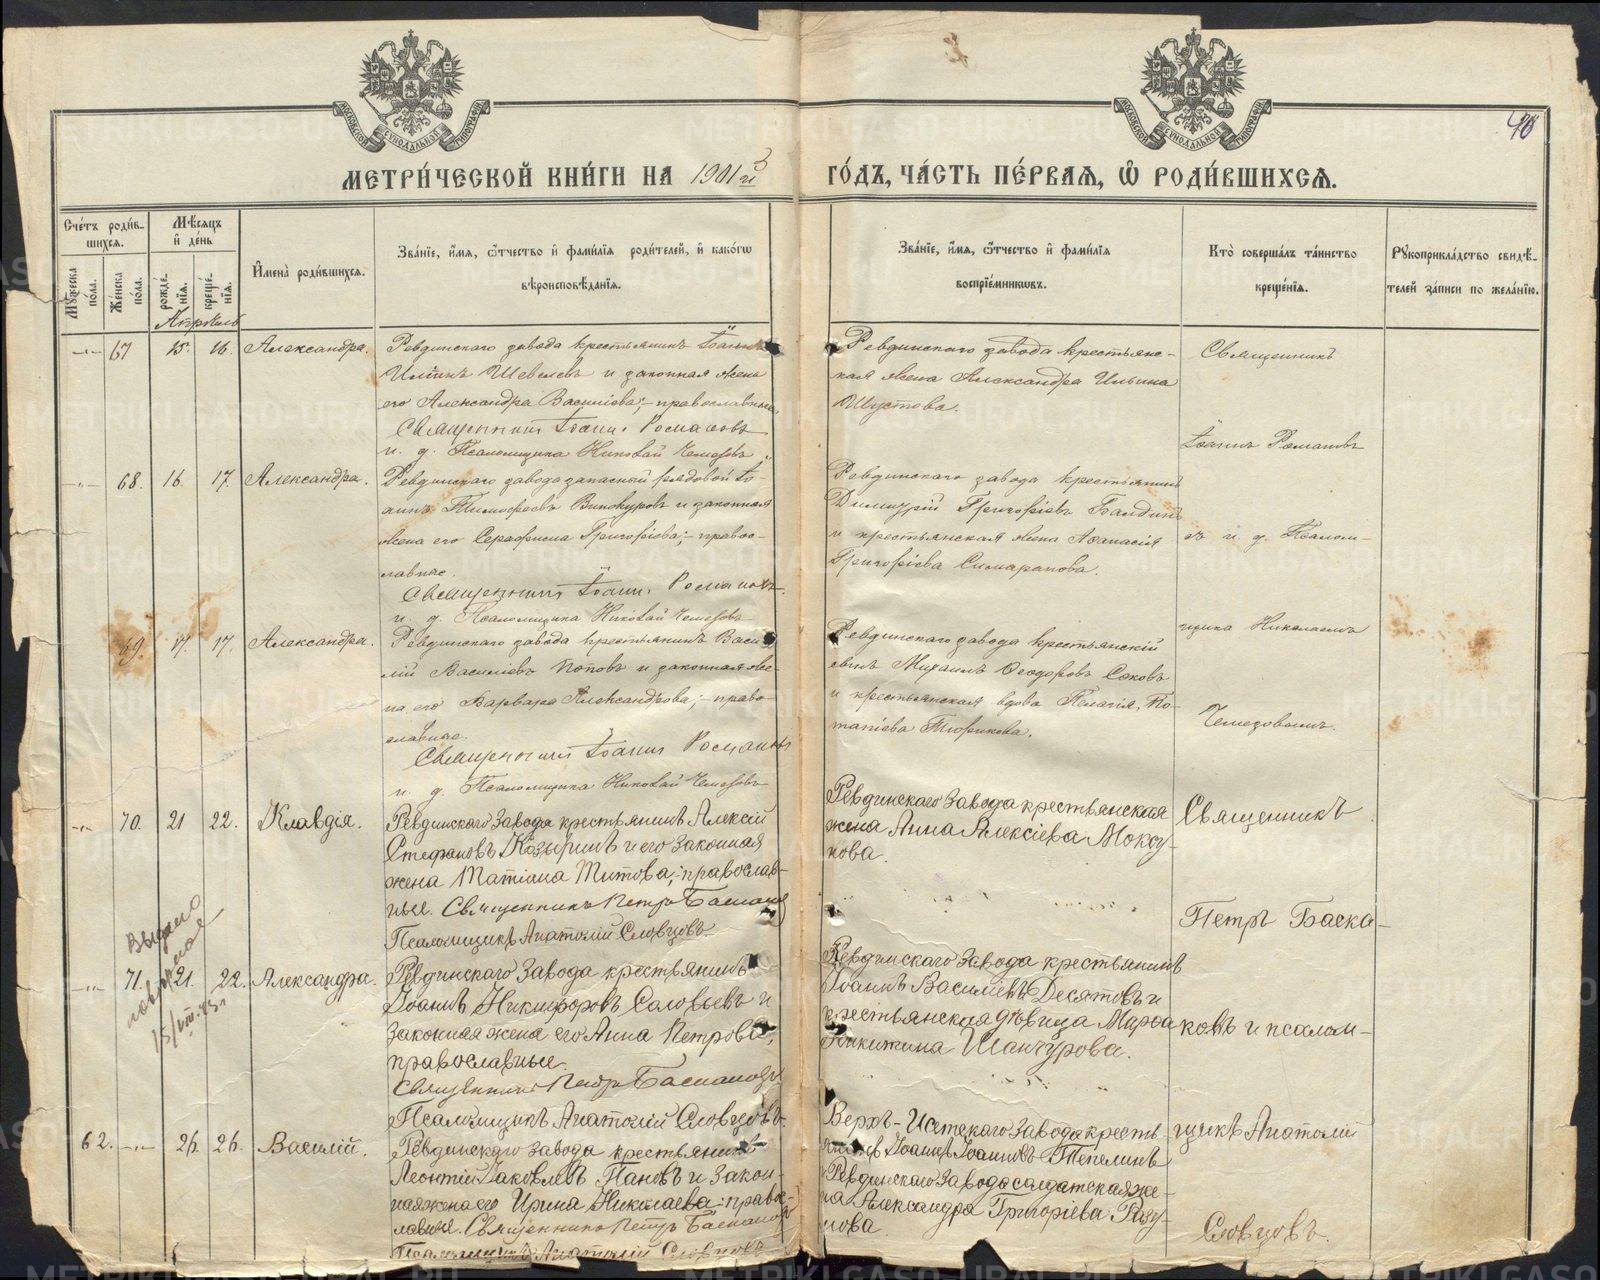 МОСКОВСКОЙ СѴНОДАЛЬНОЙ ТИПОГРАФІИ
МОСКОВСКОЙ СѴНОДАЛЬНОЙ ТИПОГРАФІИ
МЕТРИ́ЧЕСКОЙ КНИ́ГИ НА 1901 ГО́ДЪ, ЧА́СТЬ ПЕ́РВАЯ, Ѡ РОДИ́ВШИХСЯ.
Сче́тъ роди́в-
шихся.
Мꙋ́жеска по́ла.
Же́нска по́ла.
Мѣ́сяцъ
и҆ де́нь
рожде́-
нїя.
креще́-
нїя.
И҆мена̀ роди́вшихся.
Зва́нїе, и҆́мя, ѻ҆́тчество и҆ фами́лїя роди́телей, и҆ како́гѡ
вѣроисповѣ́данїя.
Зва́нїе, и҆́мя, ѻ҆́тчество и҆ фами́лїя
воспрїе́мниковъ.
Кто̀ соверша́лъ та́инство
креще́нїя.
Рꙋкоприкла́дство свидѣ́-
телей за́писи по жела́нїю.
Апрѣль
67 15. 16. Александра.
Ревдинскаго завода крестьянинъ Іоаннъ
Ильинъ Шевелевъ и законная жена
его Александра Васильева; православные.
Священникъ Іоаннъ Романовъ
и. д. Псаломщика Николай Чемезовъ
Ревдинскаго завода крестьянс-
кая жена Александра Ильина
Шустова.
Священникъ
Іоаннъ Романовъ
68. 16. 17. Александра.
Ревдинскаго завода запасный рядовой Іо-
аннъ Тимофеевъ Винокуровъ и законная
жена его Серафима Григорієва; правос-
лавные.
Священникъ Іоаннъ Романовъ
и. д. Псаломщика Николай Чемезовъ
Ревдинскаго завода крестьянинъ
Димитрій Григорієвъ Балдинъ
и крестьянская жена Аѳанасія
Григорієва
съ и. д. Псалом-
69. 17. 17. Александра.
Ревдинскаго завода крестьянинъ Васи-
лій Васильевъ Поповъ и законная же-
на его Варвара Александрова; право-
славные.
Священникъ Іоаннъ Романовъ
и. д. Псаломщика Николай Чемезовъ
Ревдинскаго завода крестьянскій
сынъ Михаилъ Ѳеодоровъ
и крестьянская вдова Пелагія По-
тапієва Тюрикова.
щика Николаемъ
Чемезовымъ.
70. 21 22. Клавдія.
Ревдинскаго Завода крестьянинъ Алексій
Стефановъ Козыринъ и его законная
жена Татіана Титова; православ-
ные. Священникъ Петръ Баскаковъ
Псаломщикъ Анатолій Словцовъ.
Ревдинскаго Завода крестьянская
жена Анна Алексіева Мокру-
Священникъ
Петръ Баска-
Выдано
15/VIII
71. 21. 22. Александра.
Ревдинскаго Завода крестьянинъ
Іоаннъ Никифоровъ Соловьевъ и
законная жена его Анна Петрова;
православные.
Священникъ Петръ Баскаковъ
Псаломщикъ Анатолій Словцовъ
Ревдинскаго Завода крестьянинъ
Іоаннъ Василіевъ Десятовъ и
крестьянская дѣвица Марѳа
Никитина
ковъ и псалом-
62. 25. 26. Василій.
Ревдинскаго завода крестьянинъ
Леонтій Іаковлевъ Пановъ и закон-
ная жена его Ирина Николаева; право-
славные. Священникъ Петръ Баскаковъ
Псаломщикъ Анатолій Словцовъ
Верхъ-Исетскаго Завода кресть-
янинъ Іоаннъ Іоанновъ Тепелинъ
Ревдинскаго Завода солдатская же-
на Александра Григорієва
щикъ Анатолій
Словцовъ.